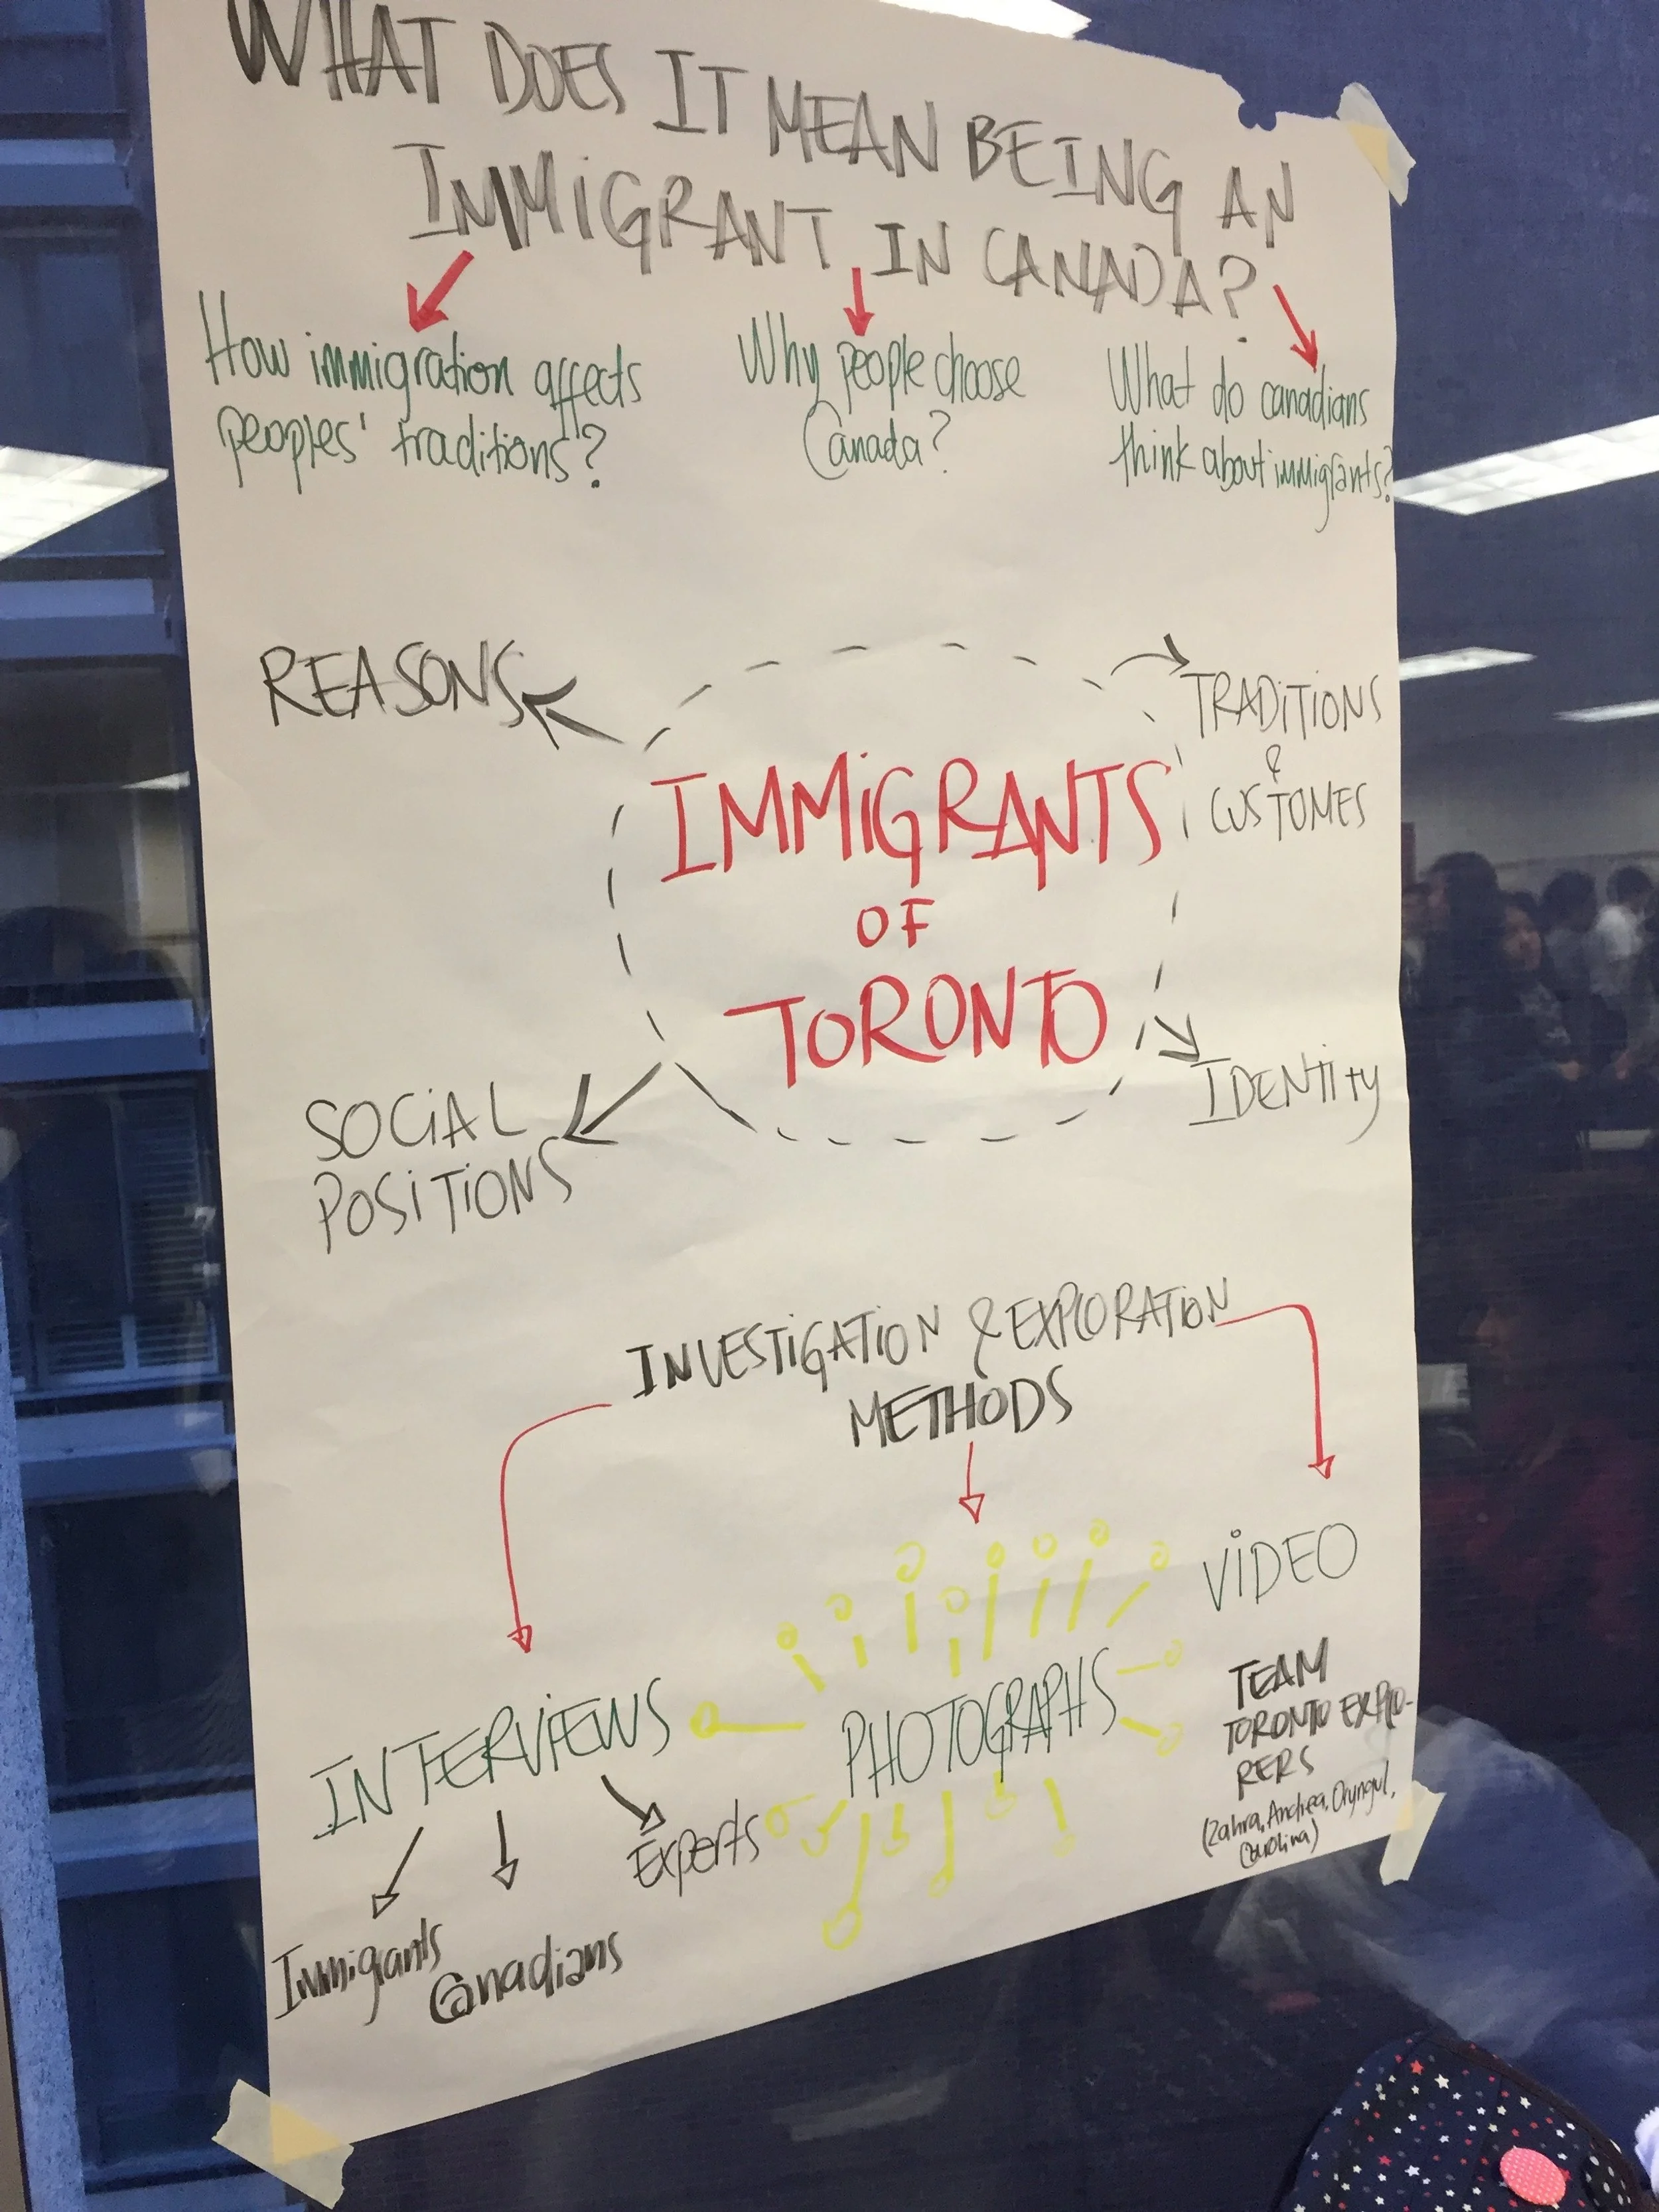 WHAT DOES IT MEAN BEING AN
IMMIGRANT IN CANADA?
How immigration affects
peoples' traditions?
Why people choose
Canada?
What do canadians
think about immigrants?
REASONS
TRADITIONS
&
CUSTOMES
IMMIGRANTS
OF
TORONTO
SOCIAL
POSITIONS
IDENTITY
INVESTIGATION & EXPLORATION
METHODS
VIDEO
INTERVIEWS
PHOTOGRAPHS
Experts
Immigants
Canadians
TEAM
TORONTO EXPLO-
RERS
(Zahra, Andrea, Oryngul,
Carolina)